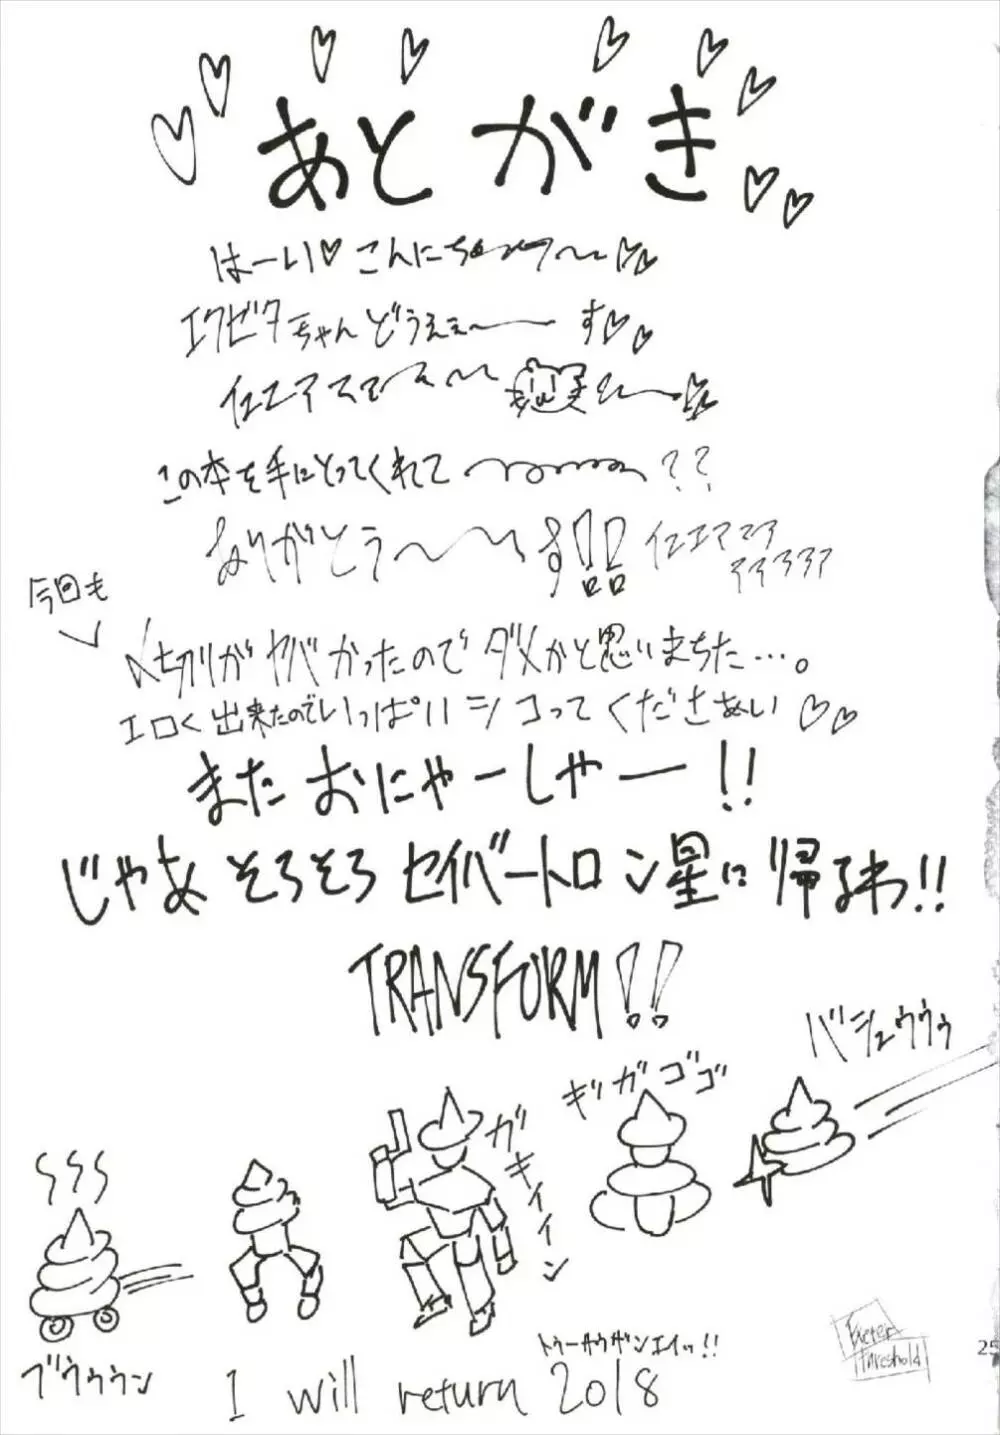 あとがき
はーい♡こんにちゎ〜〜♡♡
エクゼタちゃんどうぇぇ〜〜す♡♡
イエエア
この本を手にとってくれて〜〜??
ありがとう〜〜す!!
イエエアアア
アアアアア
今回も
〆切りがヤバかったのでダメかと思いまちた…。
エロく出来たのでいっぱいシコってくださぁい♡♡
またおにゃーしゃー!!
じゃあそろそろセイバートロン星に帰るわ!!
TRANSFORM!!
バシュウゥゥ
ギガゴゴ
ガキイイイン
ブウゥゥン
トゥーサウザンエイッ!!
I will return 2018
Exeter
threshold
25